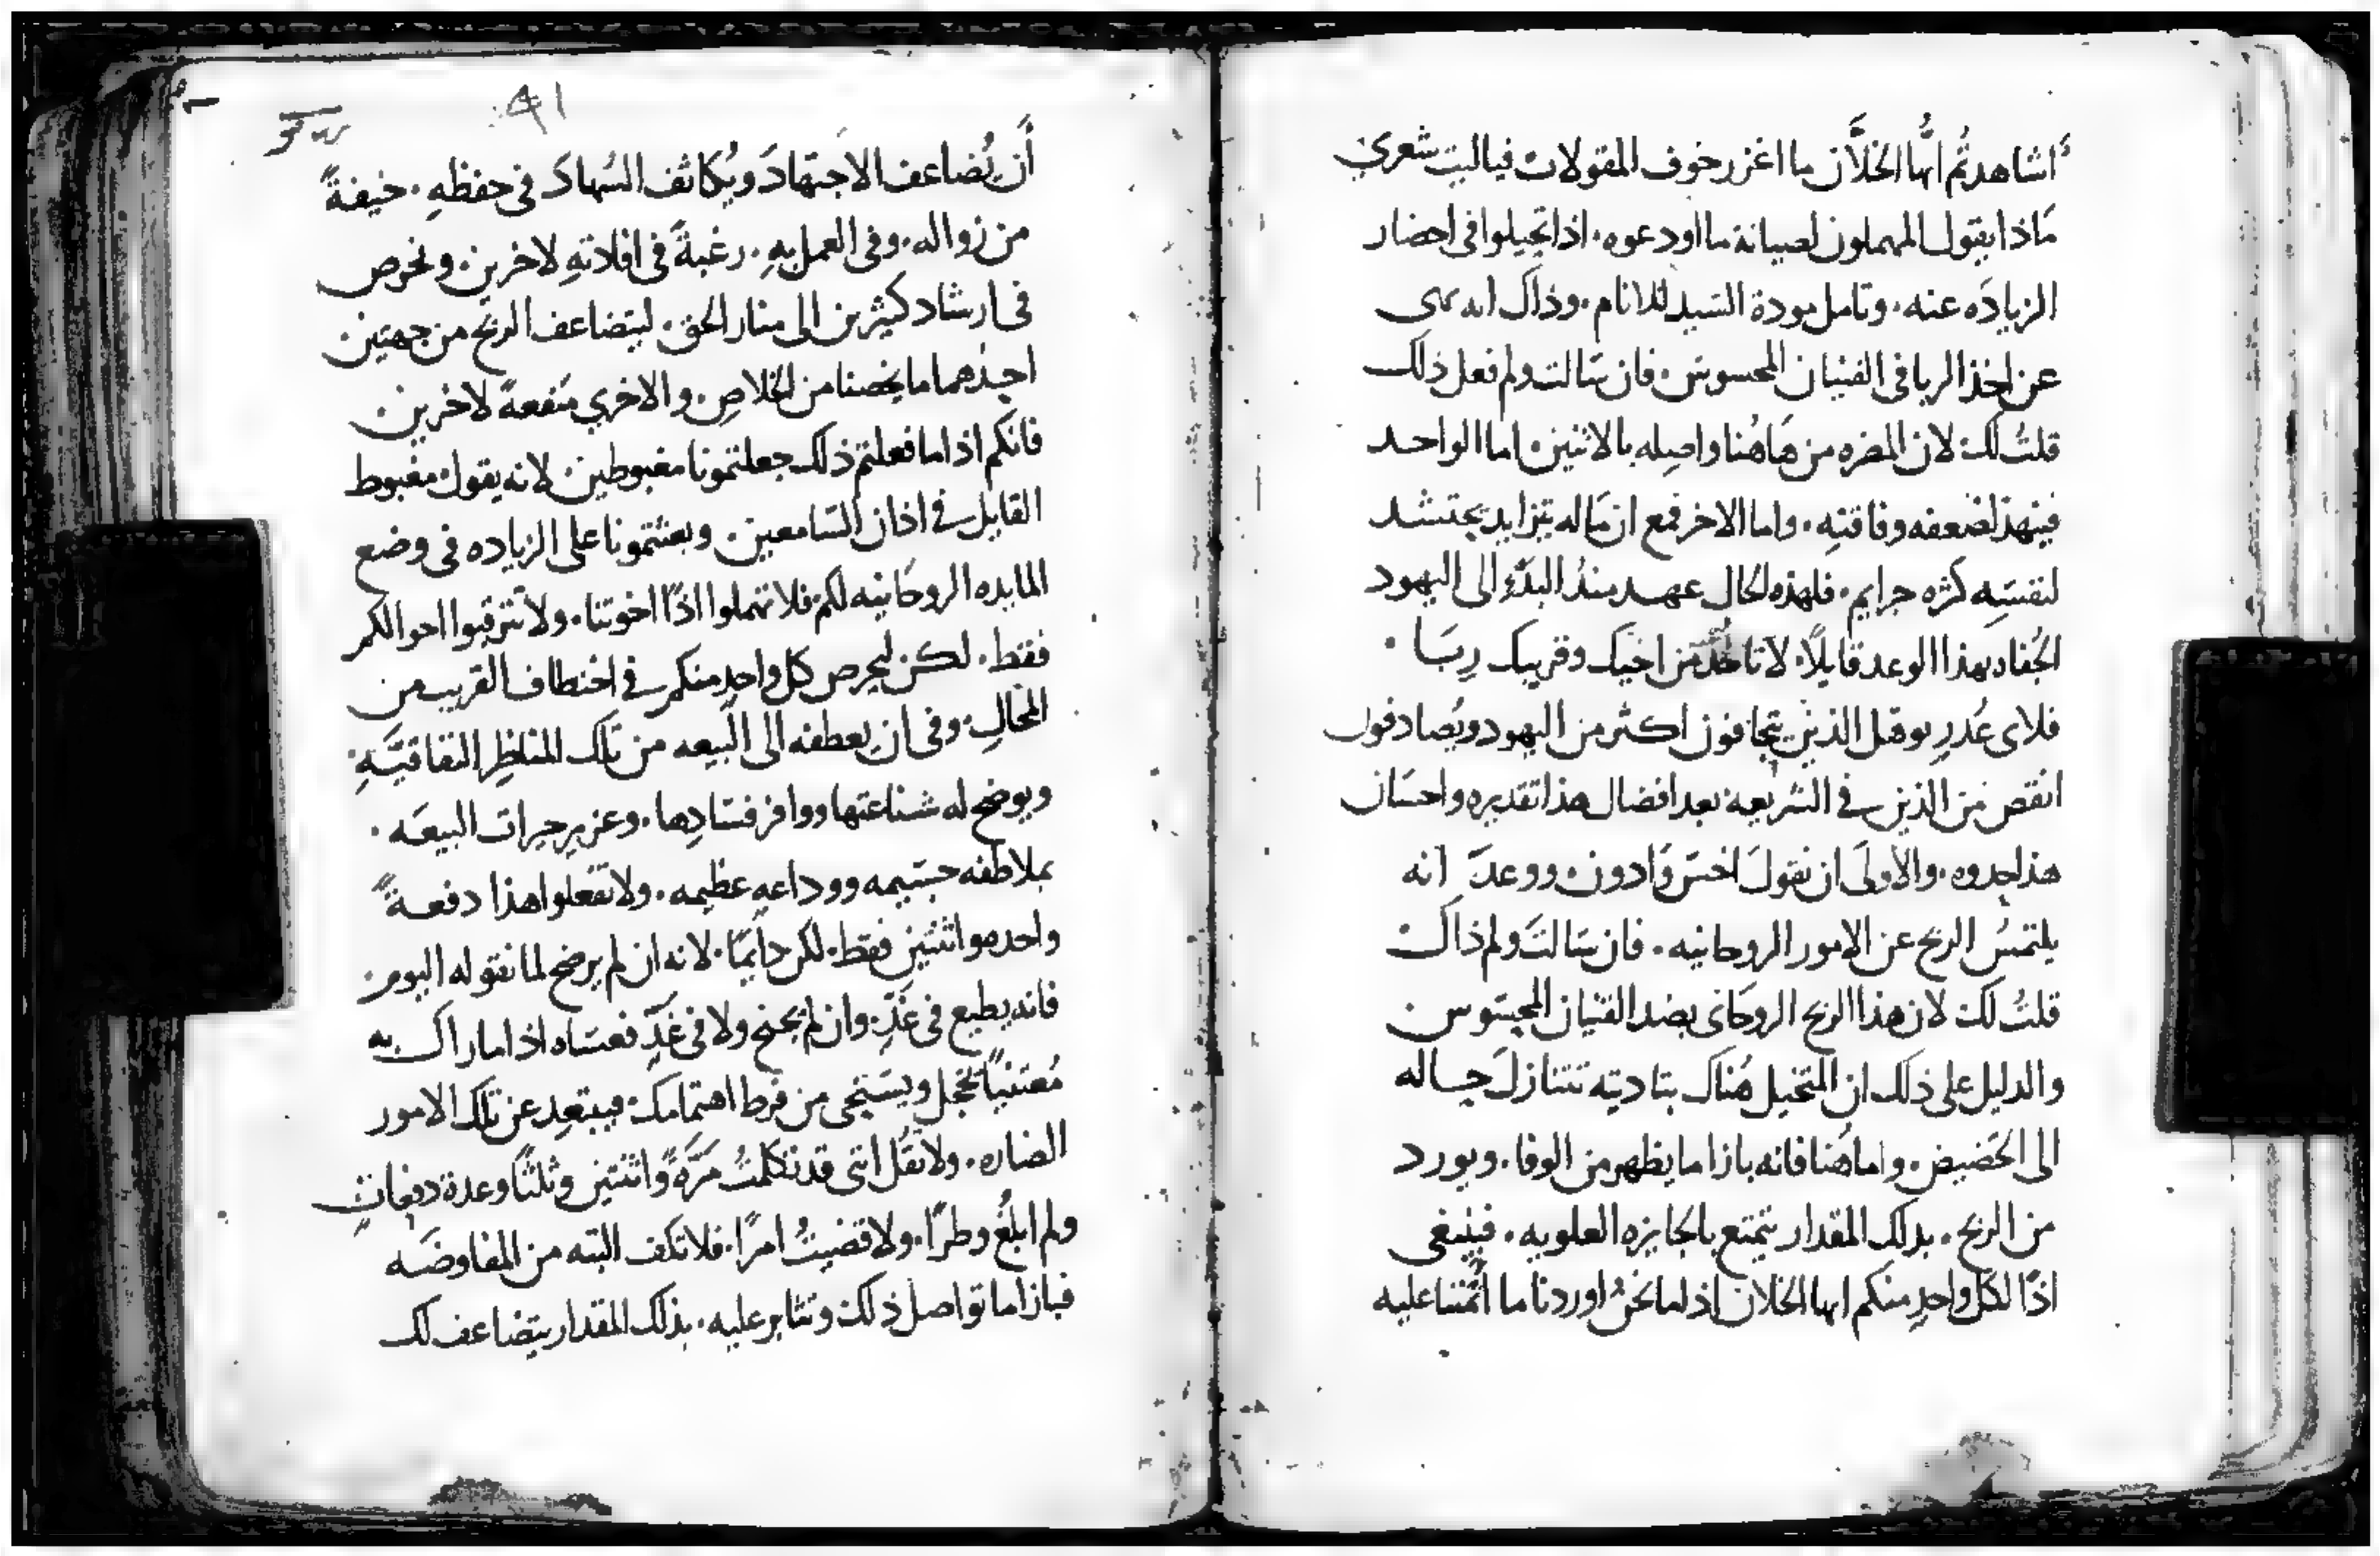 اشاهدتُم ايُّها الخلاَّن ما اغزر خوف المقولات فياليت شعري
مَاذا يقول المهملون لصيانة ما اودعوه. اذا تحيلوا فى احضار
الزيادَه عنه. وتامل مودة السَيد للانام. وذاك انه نهى
عن اخذ الربا فى القنيان المحسوس. فان سَالت ولم فعل ذلك
قلتُ لك لان المضره من هَاهُنا واصِله بالاثنين. اما الواحد
فينهدّ لضعفه وفاقتهِ. واما الاخر فمع ان مَاله يتزايد يحتشد
لنفسَِه كثره جرايم. فلهذه الحال عهد منذُ البَدْءِ الى اليهود
الجُفاه بهذا الوعد قايلاً. لا تاخُذ من اخيك وقريبك رِبَا .
فلاى عُذرٍ يوهل الذين يتجافون اكثر من اليهود ويُصادفون
انقص من الذين فى الشريعه بعد افضال هذا تقديره واحسَان
هذا جدوه. والاَولىَ ان نقولَ اخسَّ وَادون. ووعدَ انه
يلتمسُ الربح عن الامور الروحانيه. فان سَالتَ ولم ذاك
قلتُ لك لان هذا الربح الروحَانى بضد القنيان المحسَوس
والدليل على ذلك ان المتخيل هُناك بتاديته تتنازلَ حاله
الى الحَضيض. واما هَنا فانه بازا ما يظهر من الوفا. ويورد
من الربح. بذلك المقدار يتمتع بالجايزه العلويه. فينبغى
اذًا لكل واحدٍ منكم ايها الخلان اذا ما نحنُ اوردنا ما اُتُمنَّا عليه
41
أَن يُضاعف الاجتهادَ ويُكاثف السُهادَ فى حفظهِ. خيفةً
من زواله. وفى العمل بِهِ. رغبةً فى افلاتهِ لاخرين. ونحرص
فى ارشاد كثيرين الى منار الحق. ليتضاعف الربح من جهتين
احدٰهما ما يخصنا من الخلاصِ. والاخري مَنفعةً لاخرين.
فانكم اذا ما فعلتم ذلك جعلتمونا مغبوطين. لانه يقول مغبوط
القايل فى اذان السَامعين. وبعثتمونا على الزياده فى وضع
المايده الروحَانيه لكم. فلا تهملوا اذًا اخوتنا. ولا تترقبوا احوالكم
فقط. لكن ليحرص كل واحدٍ منكم فى اختطاف القريب من
المحَالِ. وفى ان يعطفه الى البيعه من تلك المناظِر النفاقيَّهِ.
ويوضح له شناعتها ووافر فسَادِها. وعزير خيرات البيعَه .
بملاطفه جسَيمه ووداعهٍ عظيمه. ولا تفعلوا هذا دفعةً
واحده واثنتين فقط. لكن دايَمًا. لانه ان لم يرضح لما نقوله اليوم.
فانه يطيع فى غدٍّ. وان لم يجنح ولا فى غدٍّ فعسَاه اذا ما راك به
مُعتنيًا تخجل ويسَتحى من فرط اهتمامك. فيبتعِد عن تلك الامور
الضاره. ولا تقُل اننى قد تكلمتُ مَرَّةً واثنتين وثلثًا وعدة دفعاتٍ
ولم ابلغ وطرًا. ولا قضيتُ امرًا. فلا تكف البته من المفاوضَه
فبازا ما تواصل ذلك وتثابر عليه. بذلك المقدار يتضاعف لك